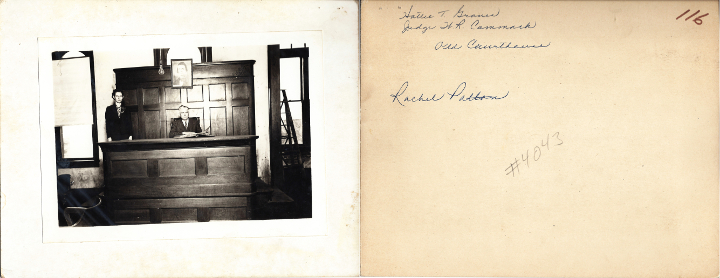 "Hattie T. Graner
Judge W R Cammack
Old Courthouse
116
Rachel Patton
#4043